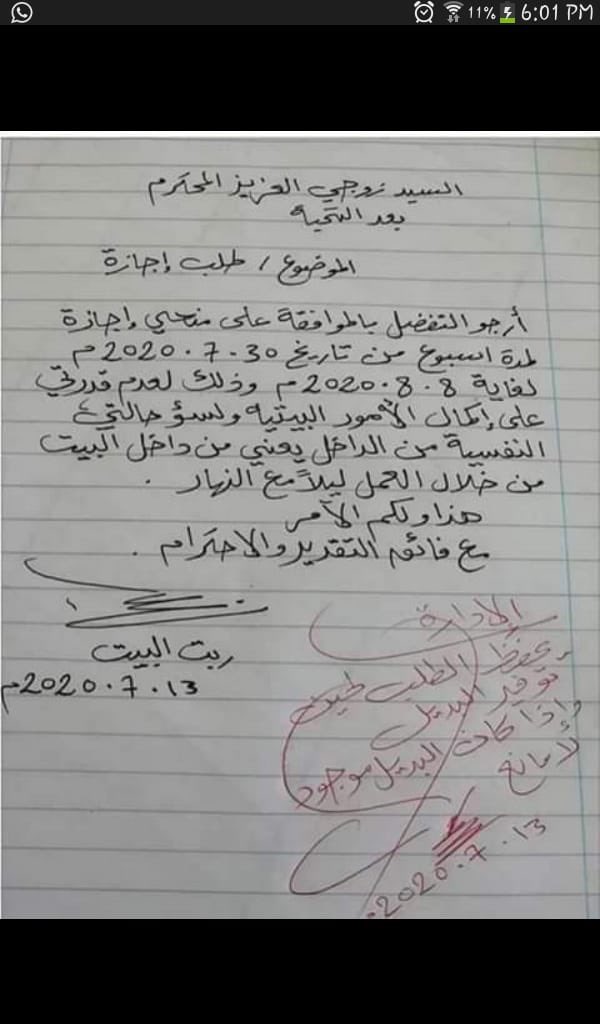 11% 6:01 PM
السيد زوجي العزيز المحترم
بعد التحية
الموضوع / طلب إجازة
أرجو التفضل بالموافقة على منحي إجازة
لمدة اسبوع من تاريخ 30.7.2020م
لغاية 8.8.2020م وذلك لعدم قدرتي
على إكمال الأمور البيتيه ولسؤ حالتي
النفسية من الداخل يعني من داخل البيت
من خلال العمل ليلاً مع النهار .
هذا ولكم الأمر
مع فائق التقدير والاحترام .
ربت البيت
13.7.2020م
الإدارة
يحفظ الطلب لحين
توفير البديل
وإذا كان البديل موجود
لا مانع
13.7.2020